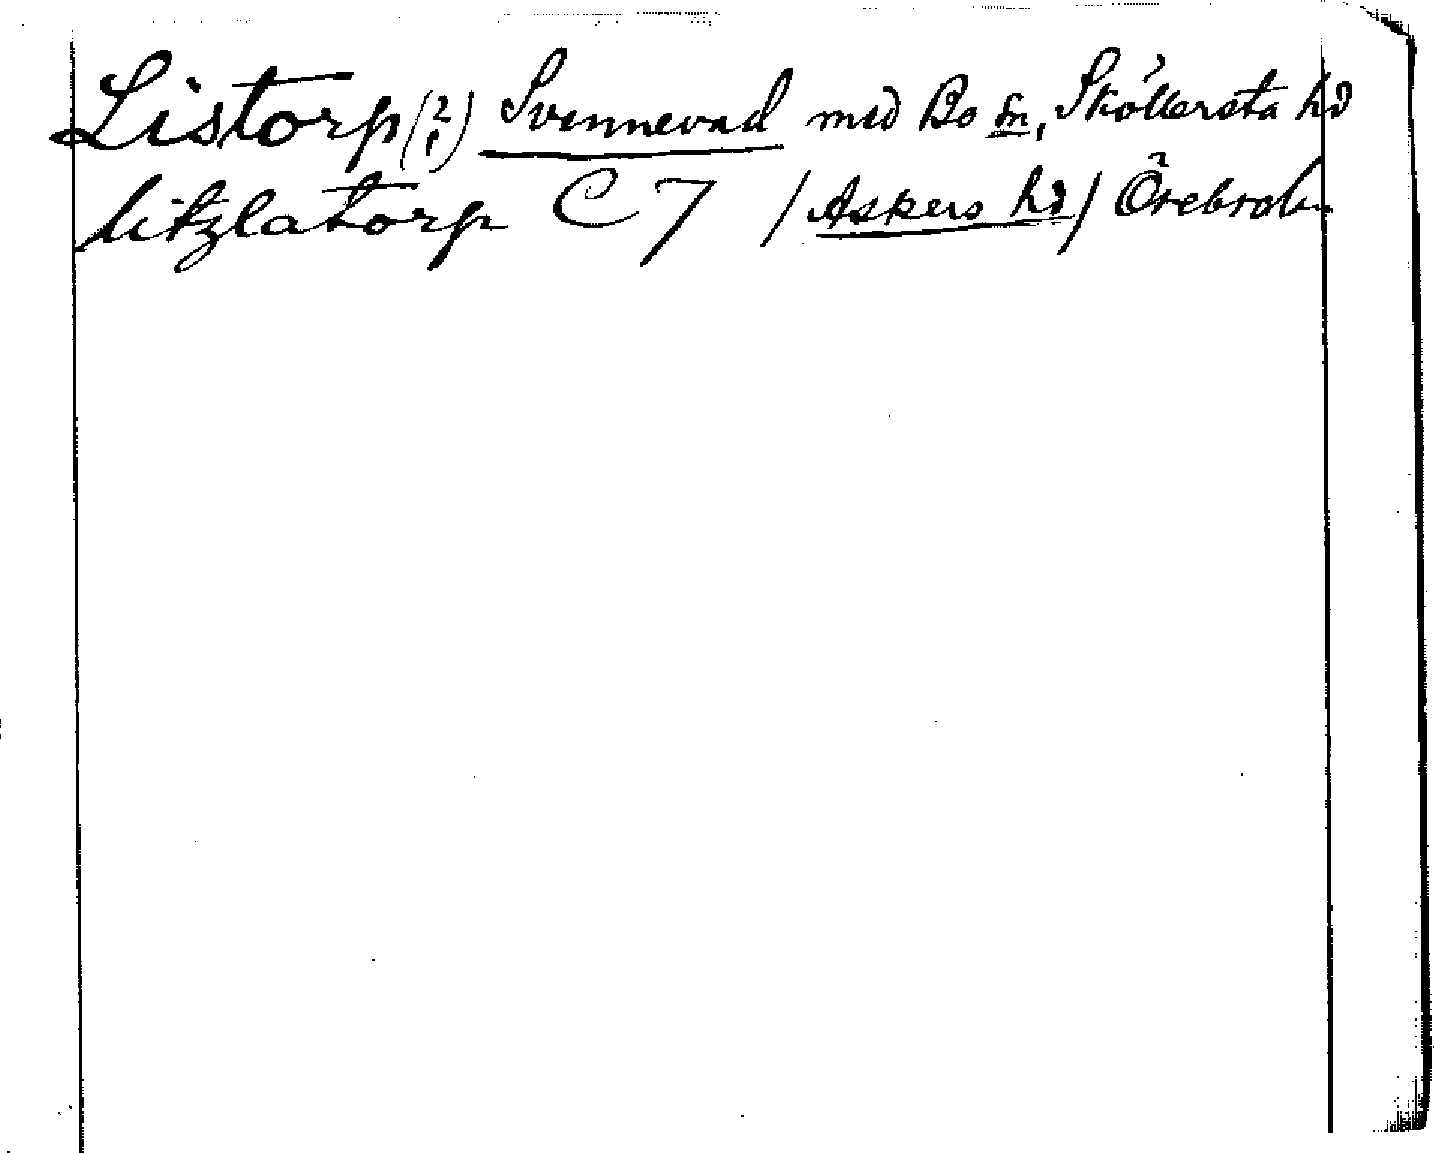 Listorp (?) Svennevad med Bo sn, Sköllersta hd
litzlatorp C 7 /Askers hd/ Örebro län